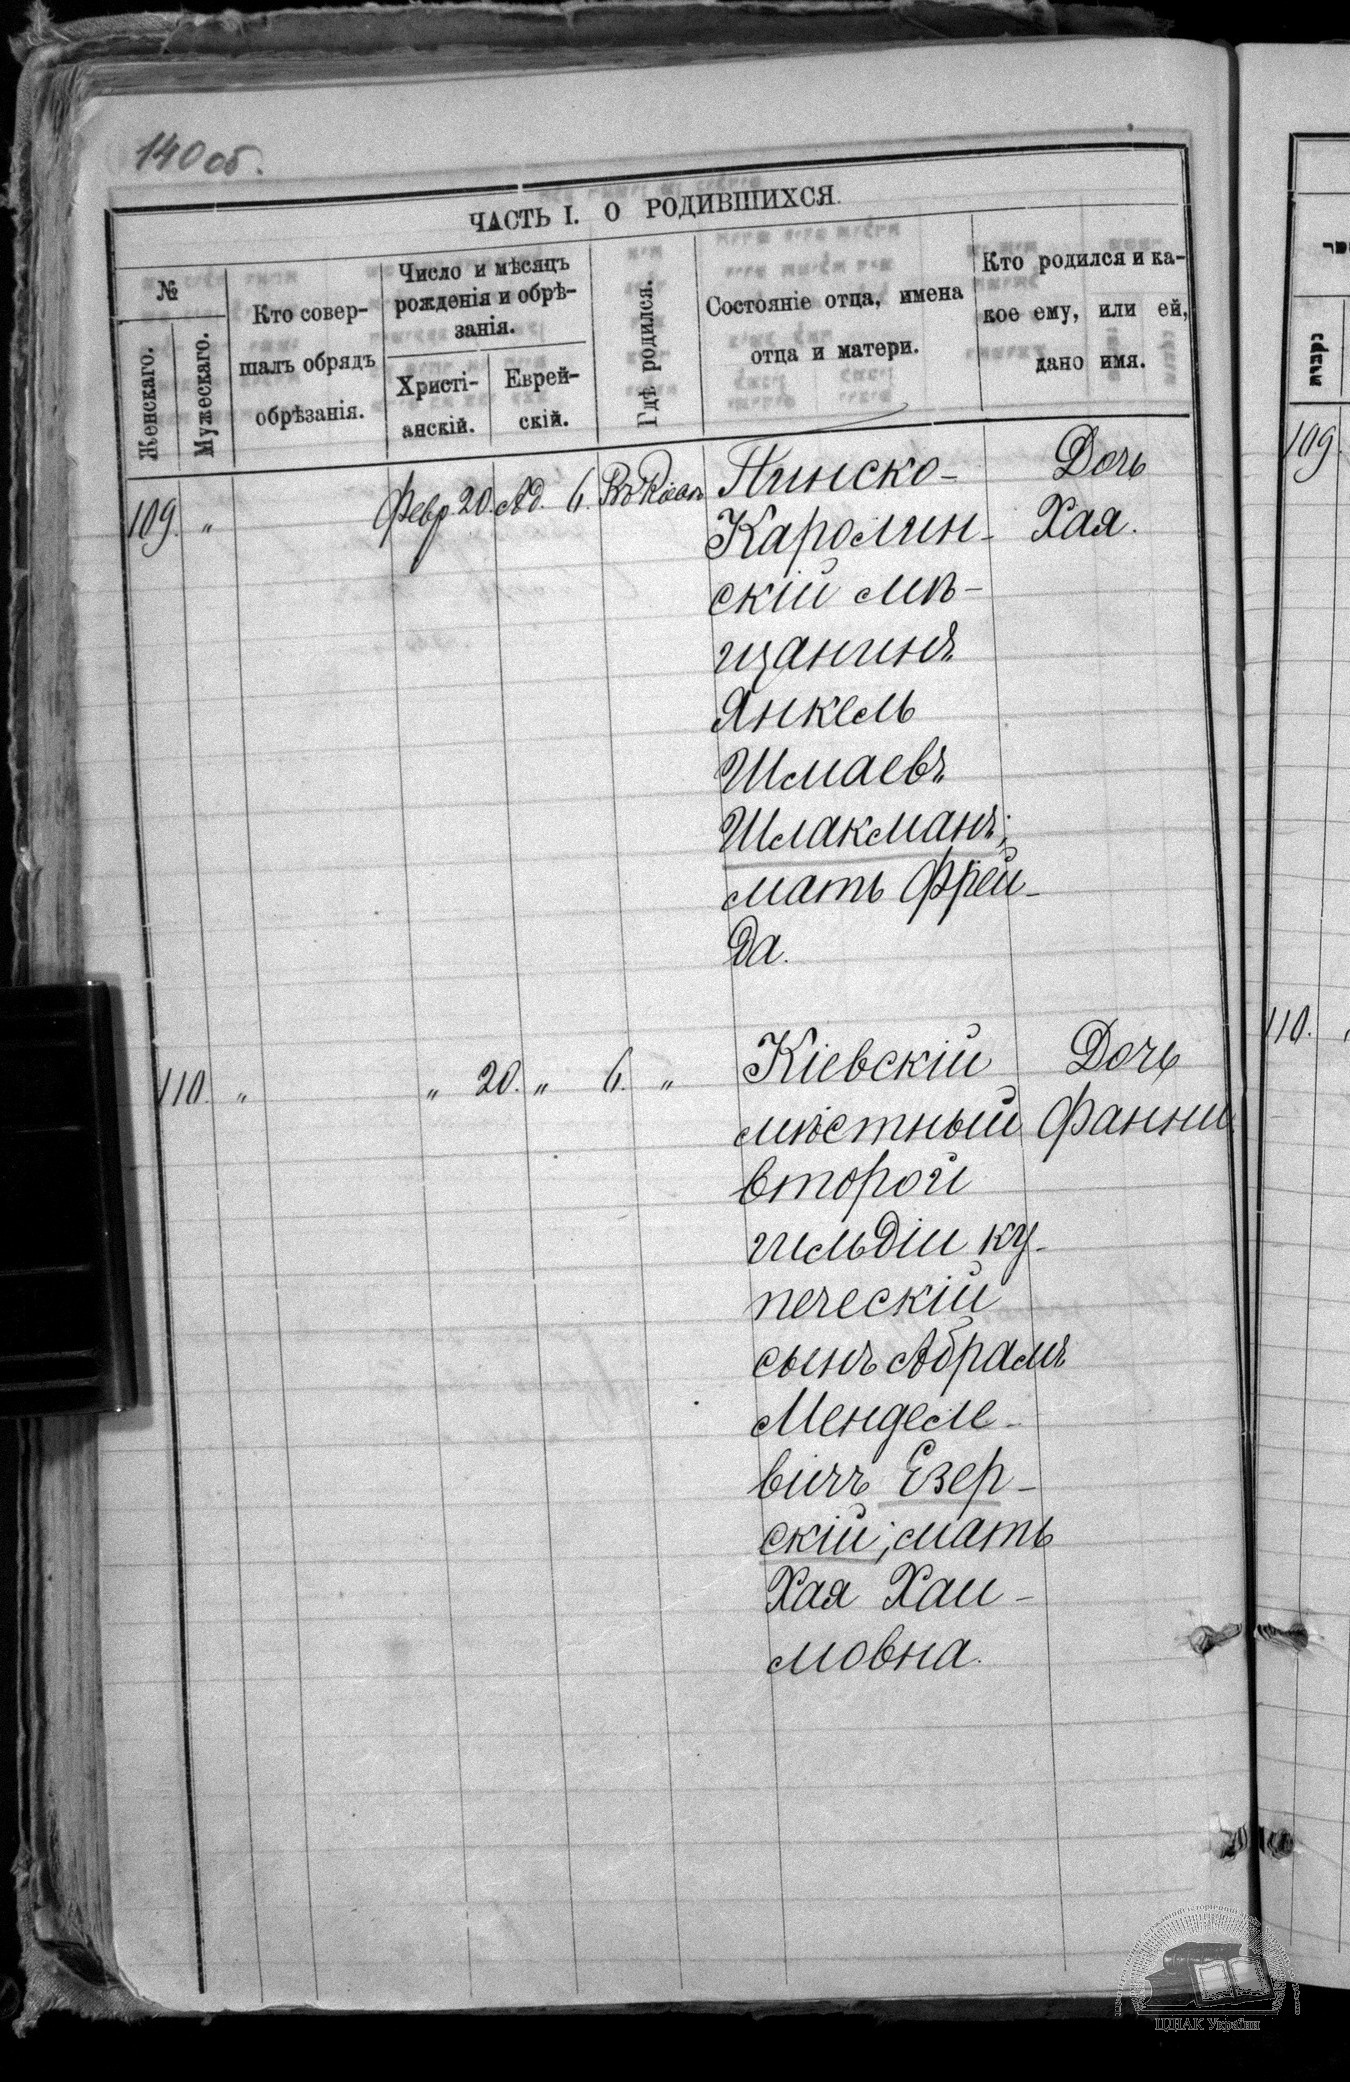 140 об.
ЧАСТЬ I. О РОДИВШИХСЯ.
№
Женскаго.
Мужескаго.
Кто совер-
шалъ обрядъ
обрѣзанія.
Число и мѣсяцъ
рожденія и обрѣ-
занія.
Христі-
анскій.
Еврей-
скій.
Гдѣ родился.
Состояніе отца, имена
отца и матери.
Кто родился и ка-
кое ему, или ей,
дано имя.
109. " Февр. 20. Ад. 6. Въ Кіевѣ
Пинско-
Каролин-
скій мѣ-
щанинъ
Янкель
Шмаевъ
Шлакманъ;
мать Фрей-
да.
Дочь
Хая.
110. " " 20. " 6. "
Кіевскій
мѣстный
второй
гильдіи ку-
печескій
сынъ Абрамъ
Менделе-
вичъ Езер-
скій; мать
Хая Хаи-
мовна.
Дочь
Фанни.
נקבות
109.
110.
ЦДІАК України